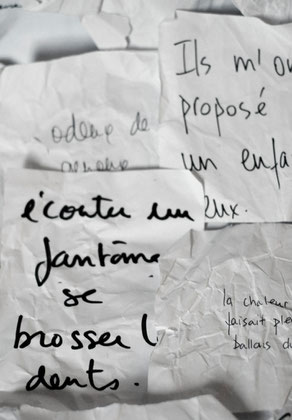 Ils m'on
proposé
un enfa
eux.
odeur de
écouter un
fantôme
se
brosser l
dents.
la chaleur
faisait ple
ballais d